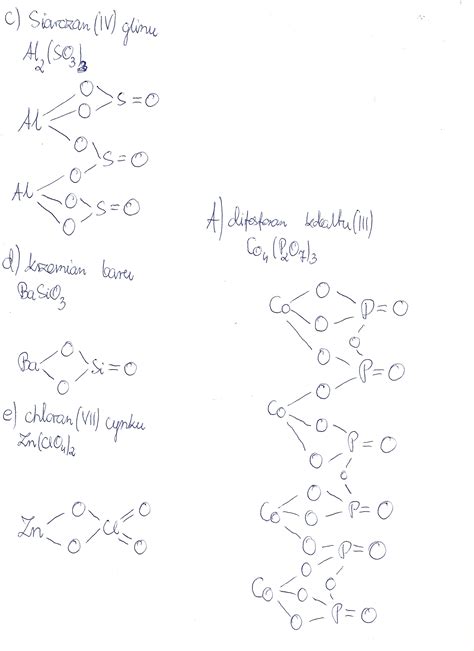 c) Siarczan (IV) glinu
Al₂(SO₃)₃
O
Al S=O
O
O
S=O
O
Al O S=O
O
d) krzemian baru
BaSiO₃
O
Ba Si=O
O
e) chloran (VII) cynku
Zn(ClO₄)₂
O O
Zn Cl
O O
f) difosforan kobaltu (III)
Co₄(P₂O₇)₃
O
Co P=O
O
O O
P=O
O
Co O
P=O
O
O
O
Co O P=O
O P=O
O
O
Co O P=O
O